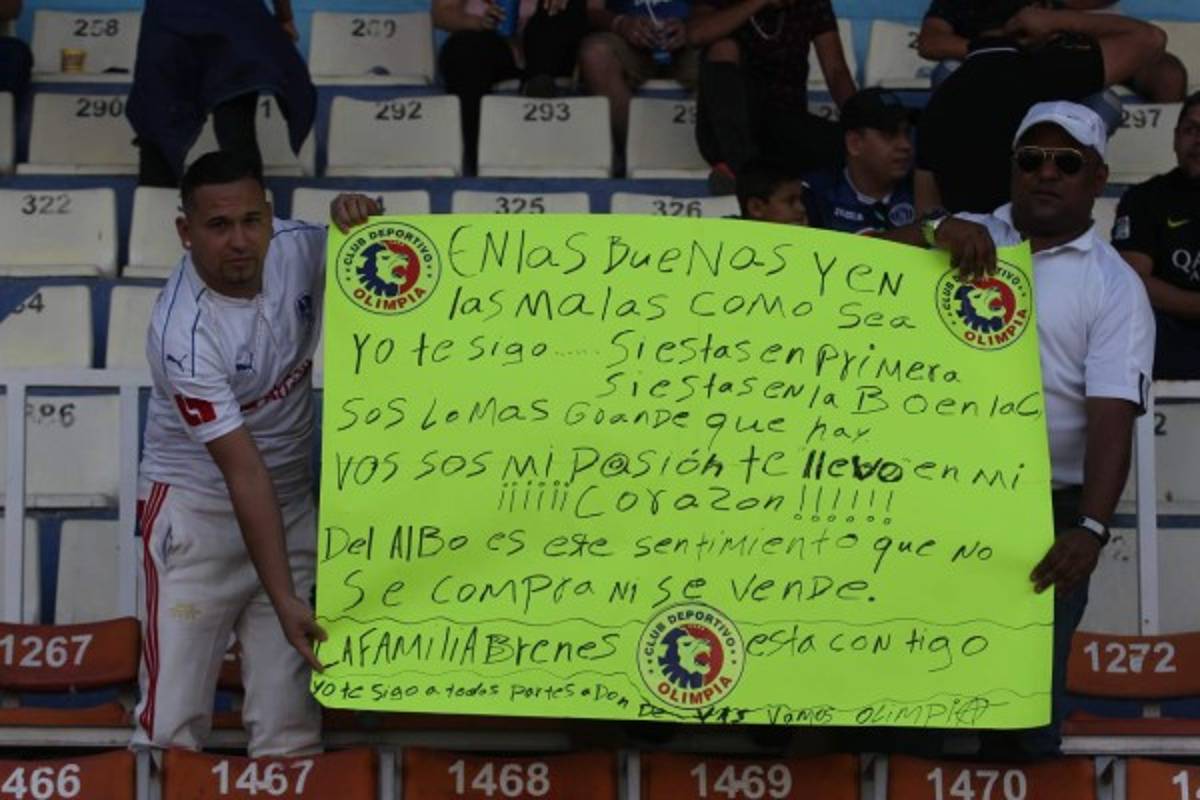 258
259
290
292
293
297
322
325
326
CLUB DEPORTIVO
OLIMPIA
CLUB DEPORTIVO
OLIMPIA
EN las BueNas Y en
las malas como sea
Yo te sigo ..... Si estas en primera
Si estas en la B o en la C
SOS lo MAS Grande que hay
VOS SOS mi p@sión te llevo en mi
¡¡¡¡¡¡ Corazon !!!!!!
Del AlBo es este sentimiento que no
Se compra ni se vende.
LA FAMILIA Brenes
CLUB DEPORTIVO
OLIMPIA
esta contigo
Yo te sigo a todos partes a Don de vas vamos OLIMPIA
1267
1272
466
1467
1468
1469
1470